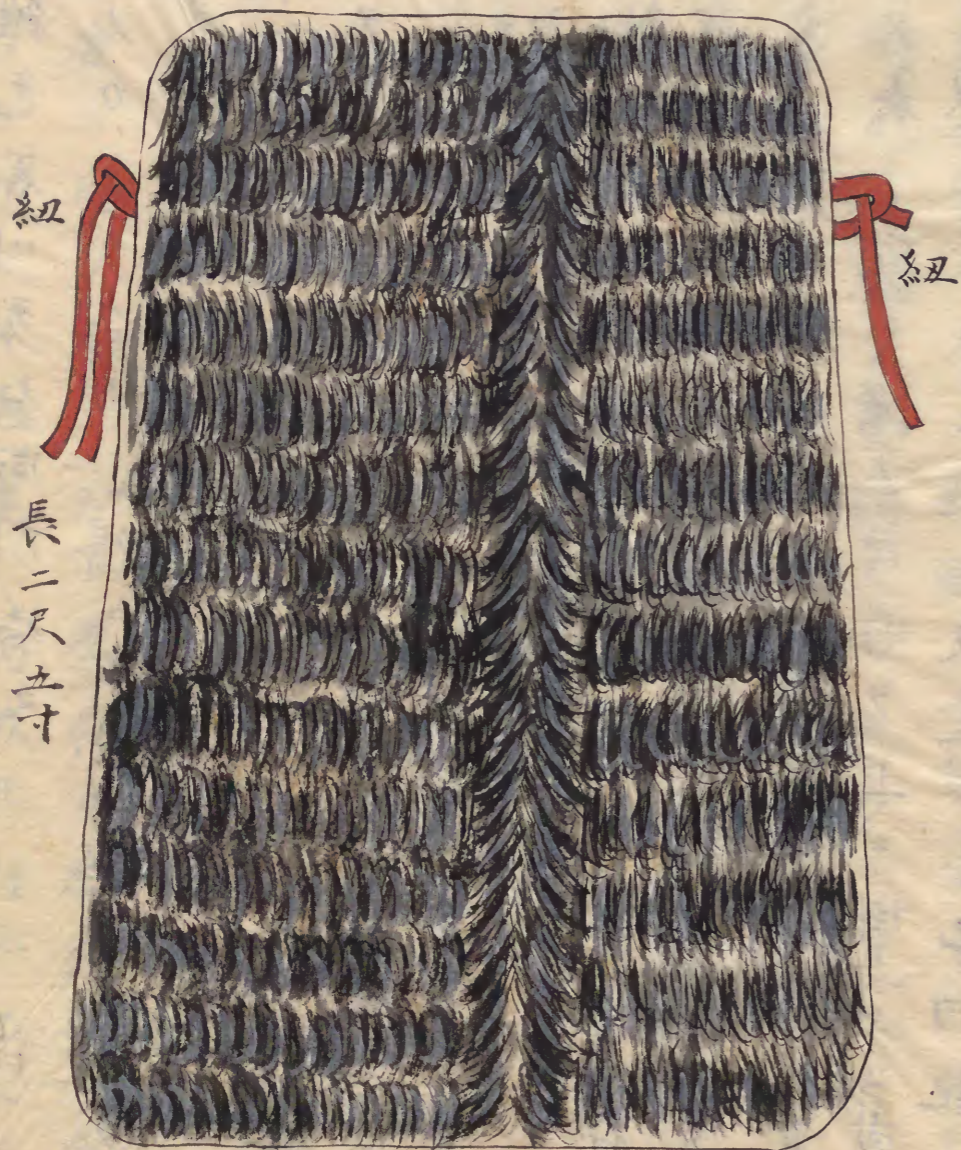 紐
紐
長二尺五寸